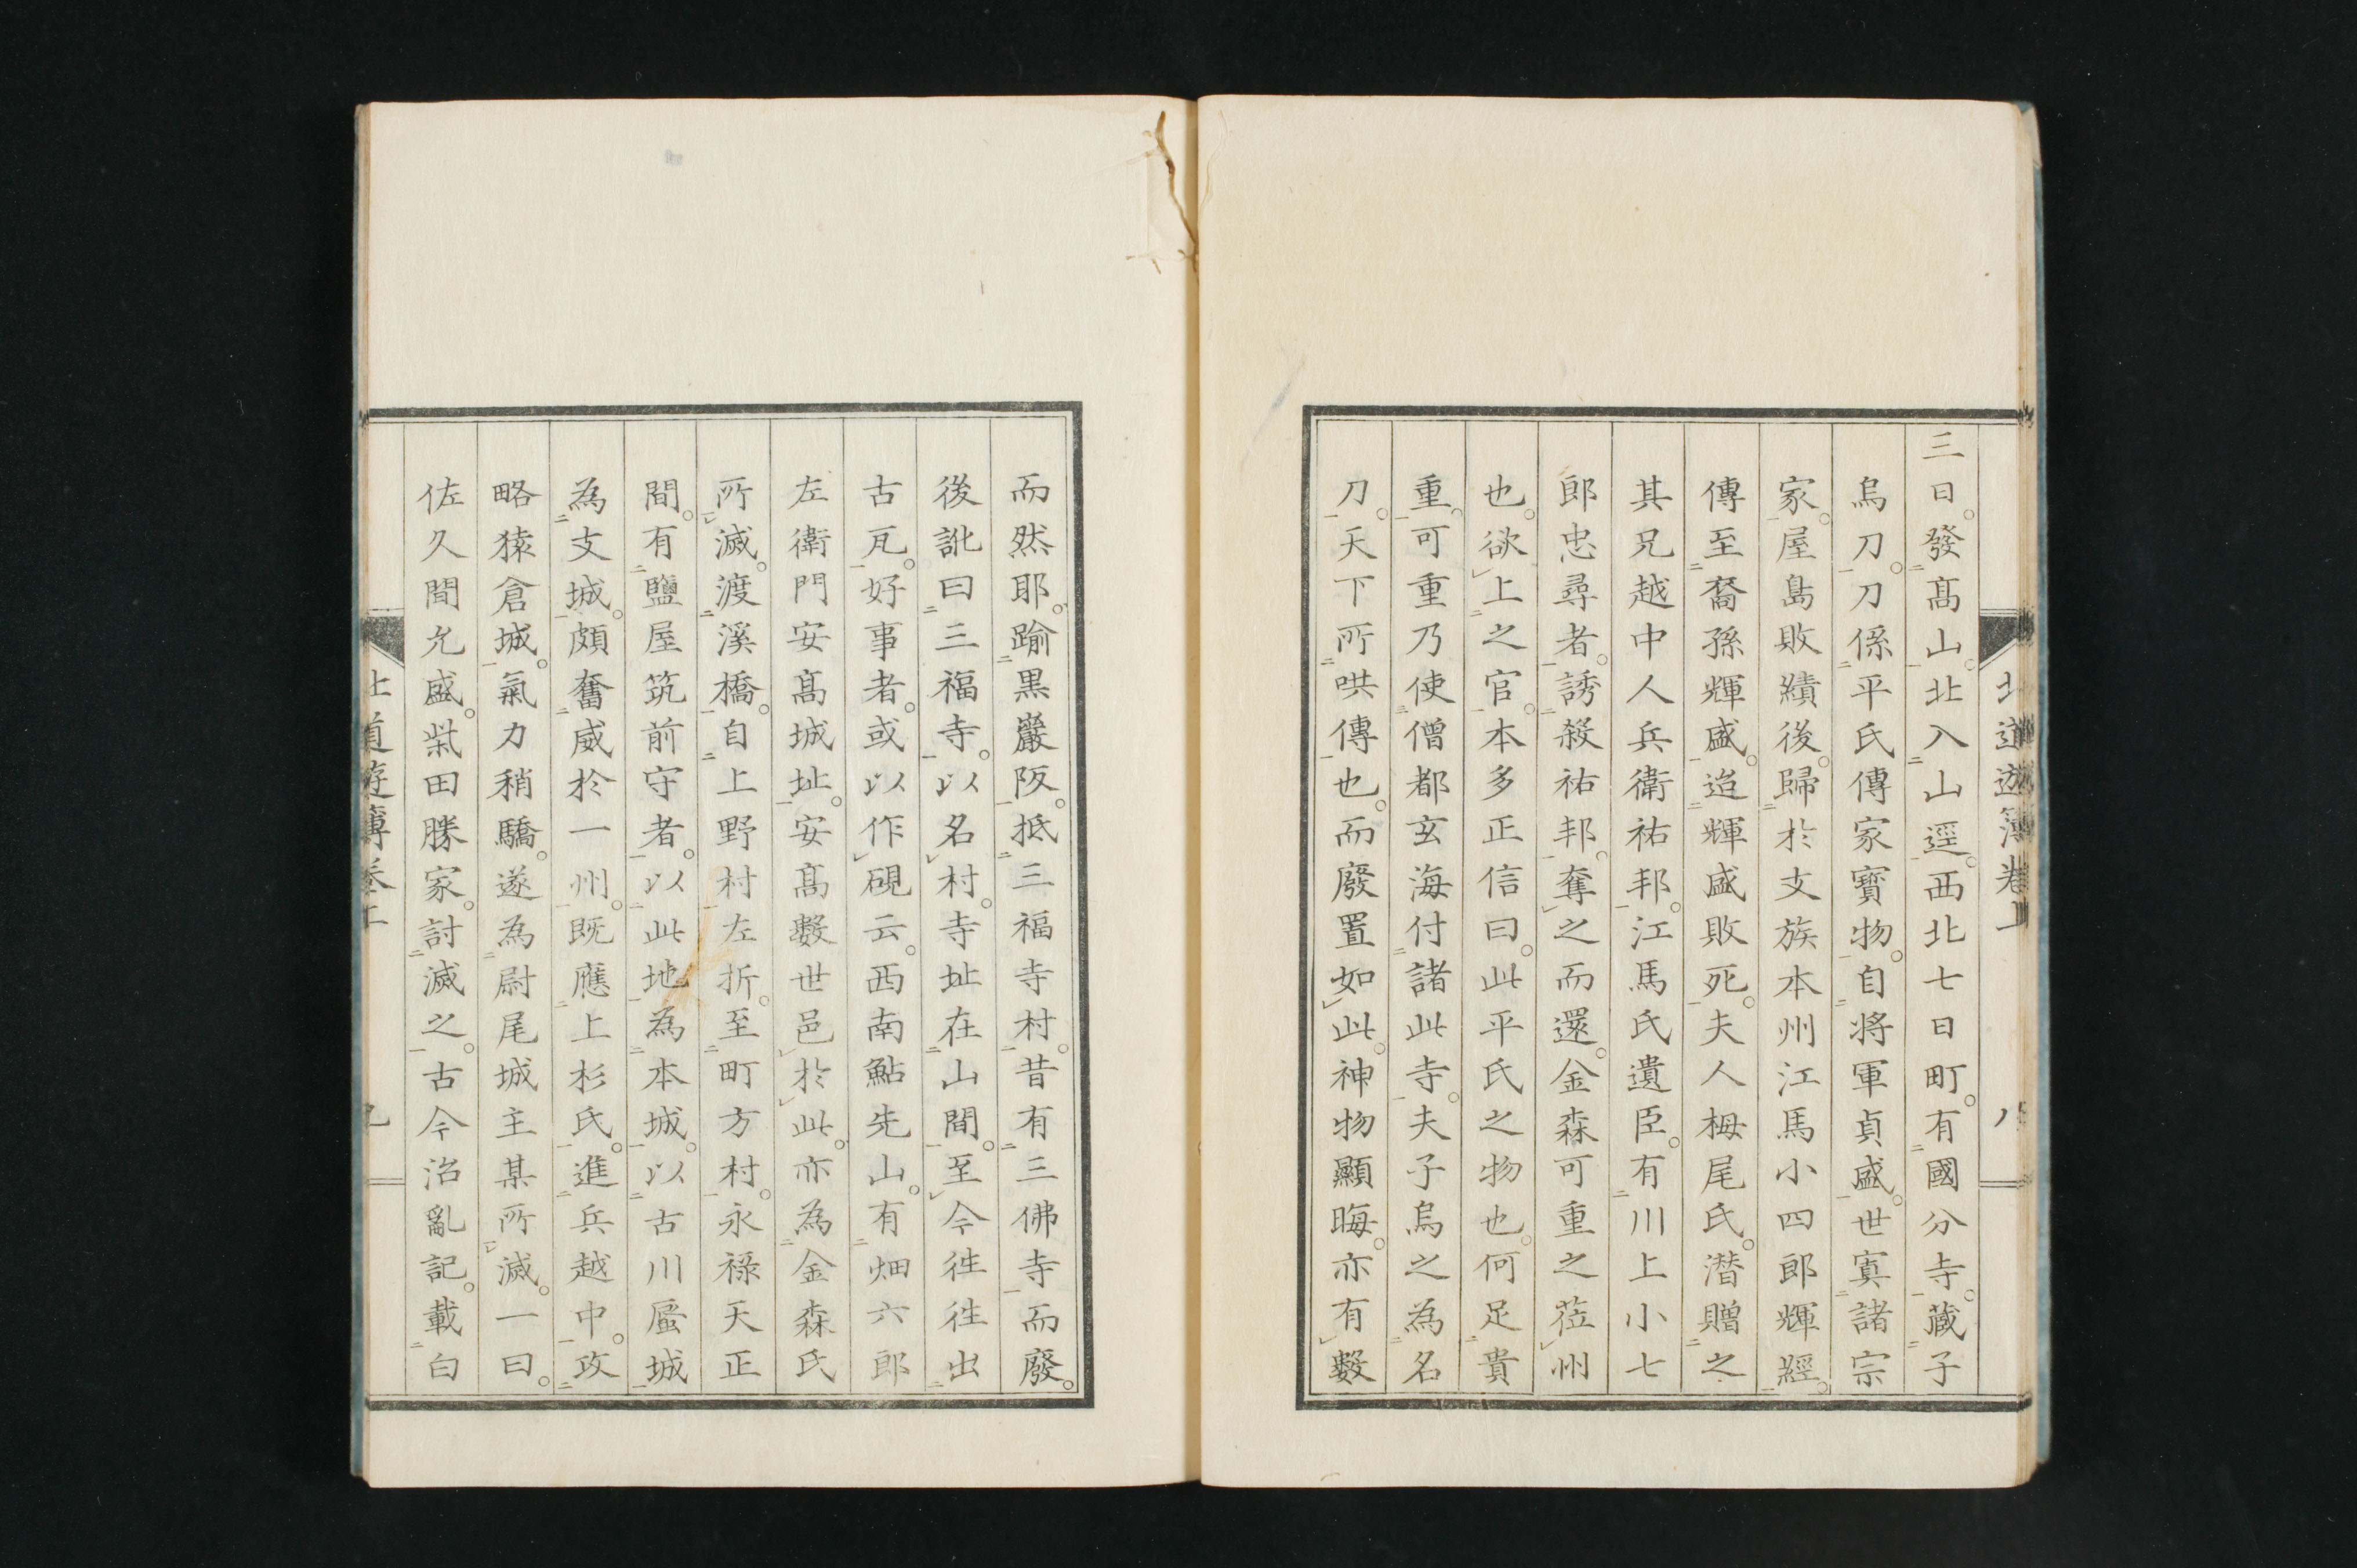 北道遊簿卷上
八
三日。發髙山。北入山逕。西北七日町。有國分寺。蔵子
烏刀。刀係平氏傳家寳物。自将軍貞盛。世寘諸宗
家。屋島敗績後。歸於支族本州江馬小四郎輝經。
傳至裔孫輝盛。迨輝盛敗死。夫人栂尾氏。潜贈之
其兄越中人兵衛祐邦。江馬氏遺臣。有川上小七
郎忠尋者。誘殺祐邦。奪之而還。金森可重之莅州
也。欲上之官。本多正信曰。此平氏之物也。何足貴
重。可重乃使僧都玄海付諸此寺。夫子烏之為名
刀。天下所哄傳也。而廢置如此。神物顯晦。亦有數
而然耶。踰黒巖阪。抵三福寺村。昔有三佛寺而廢。
後訛曰三福寺。以名村。寺址在山間。至今徃徃出
古瓦。好事者。或以作硯云。西南鮎先山。有畑六郎
左衛門安髙城址。安髙數世邑於此。亦為金森氏
所滅。渡溪橋。自上野村左折。至町方村。永禄天正
間。有鹽屋筑前守者。以此地為本城。以古川蜃城
為支城。頗奮威於一州。既應上杉氏。進兵越中。攻
略猿倉城。氣力稍驕。遂為尉尾城主某所滅。一曰。
佐久間允盛。柴田勝家。討滅之。古今治亂記。載白